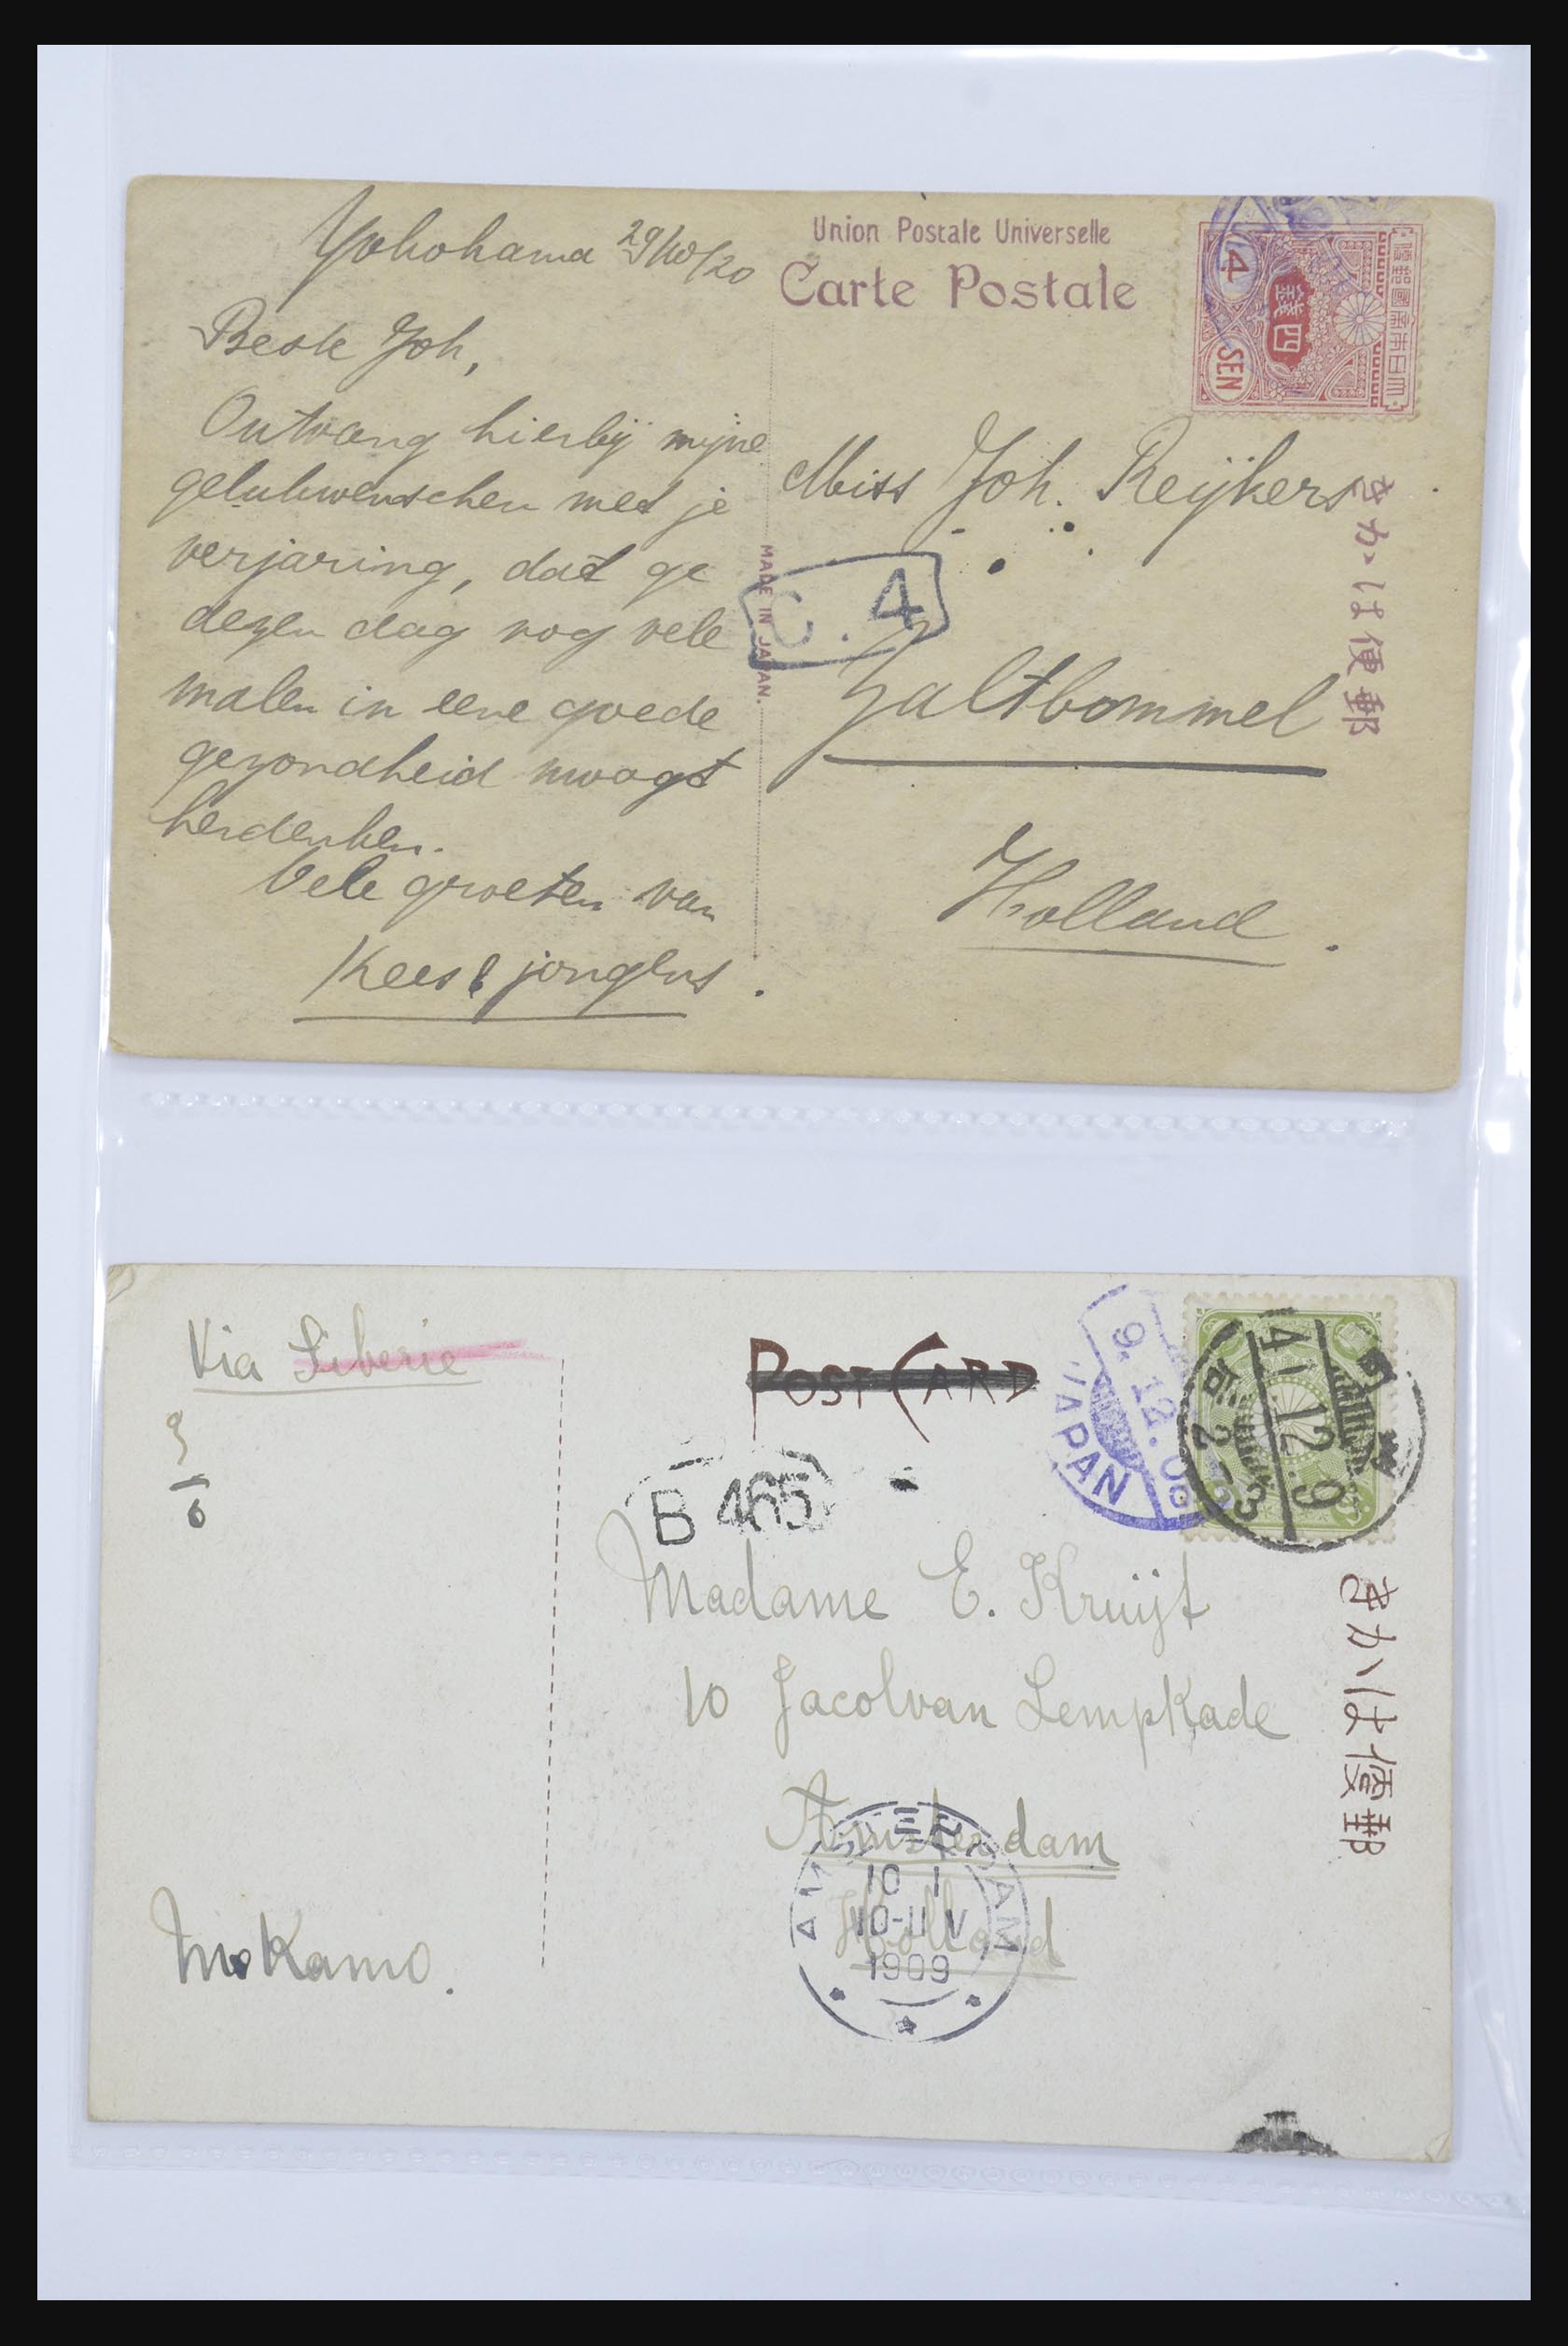 Yokohama 29/10/20
Beste Joh,
Ontvang hierbij mijne
gelukwenschen met je
verjaring, dat ge
dezen dag nog vele
malen in eene goede
gezondheid moogt
herdenken.
Vele groeten van
Kees & jongens.
Union Postale Universelle
Carte Postale
大日本帝國郵便
四錢
4 SEN
Miss Joh. Reijkers
きかは便郵
MADE IN JAPAN.
C. 4
Zaltbommel
Holland.
Via Siberie
3/6
POST CARD
JAPAN
9.12.08
41.12.9
B 465
Madame E. Kruijt
10 Jacobvan LempKade
Amsterdam
Holland
きかは便郵
AMSTERDAM
10 1
10-11 V
1909